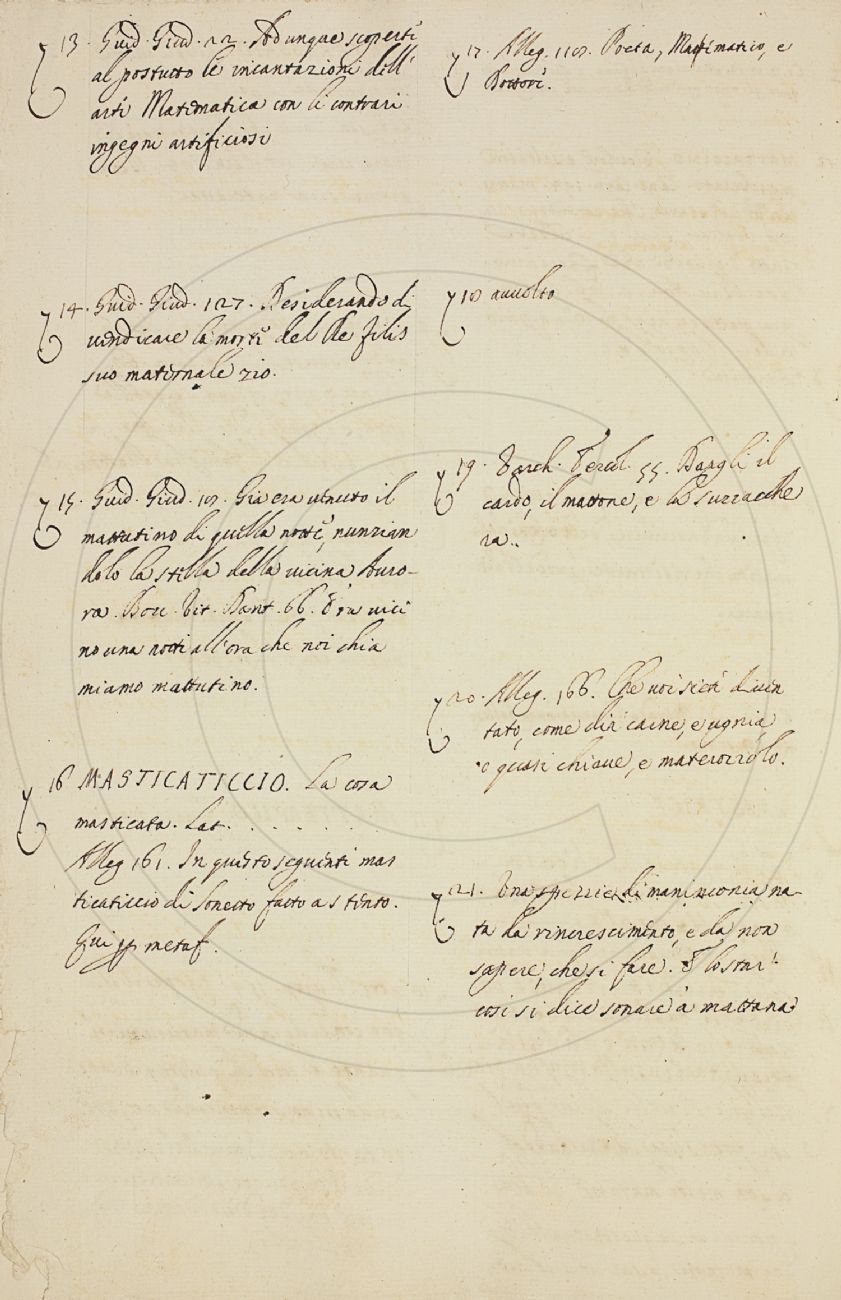 13. Guid. Giud. 22. Adunque scoperte
al postutto le incantazioni dell'
arte Matematica con li contrari
ingegni artificiosi
14. Guid. Giud. 127. Desiderando di
vendicare la morte del Re
suo maternale zio.
15. Guid. Giud. Gia era venuto il
mattutino di quella notte, nunzian
dolo la stella della vicina Auro-
ra. Bocc. Vit. Dant. 66. Era vici
no una notte all'ora che noi chia
miamo mattutino.
16 MASTICATICCIO. La cosa
masticata. Lat. . . . . . .
Alleg 161. In questo seguente mas
ticaticcio di Sonetto fatto a stento.
Qui metaf.
17. Alleg. Poeta, Matematico, e
Dottore.
18 avvolto
19. Varch. Ercol. 55. Dargli il
cardo, il mattone, e la suzzacche
ra..
20. Alleg. 166. Che voi siete diven
tato, come dir carne, e ugnia,
o quasi chiave, e materozzolo.
21. Una spezzie di maninconia na-
ta da rincrescimento, e da non
sapere, che si fare. E lo star
cosi si dice sonare a mattana